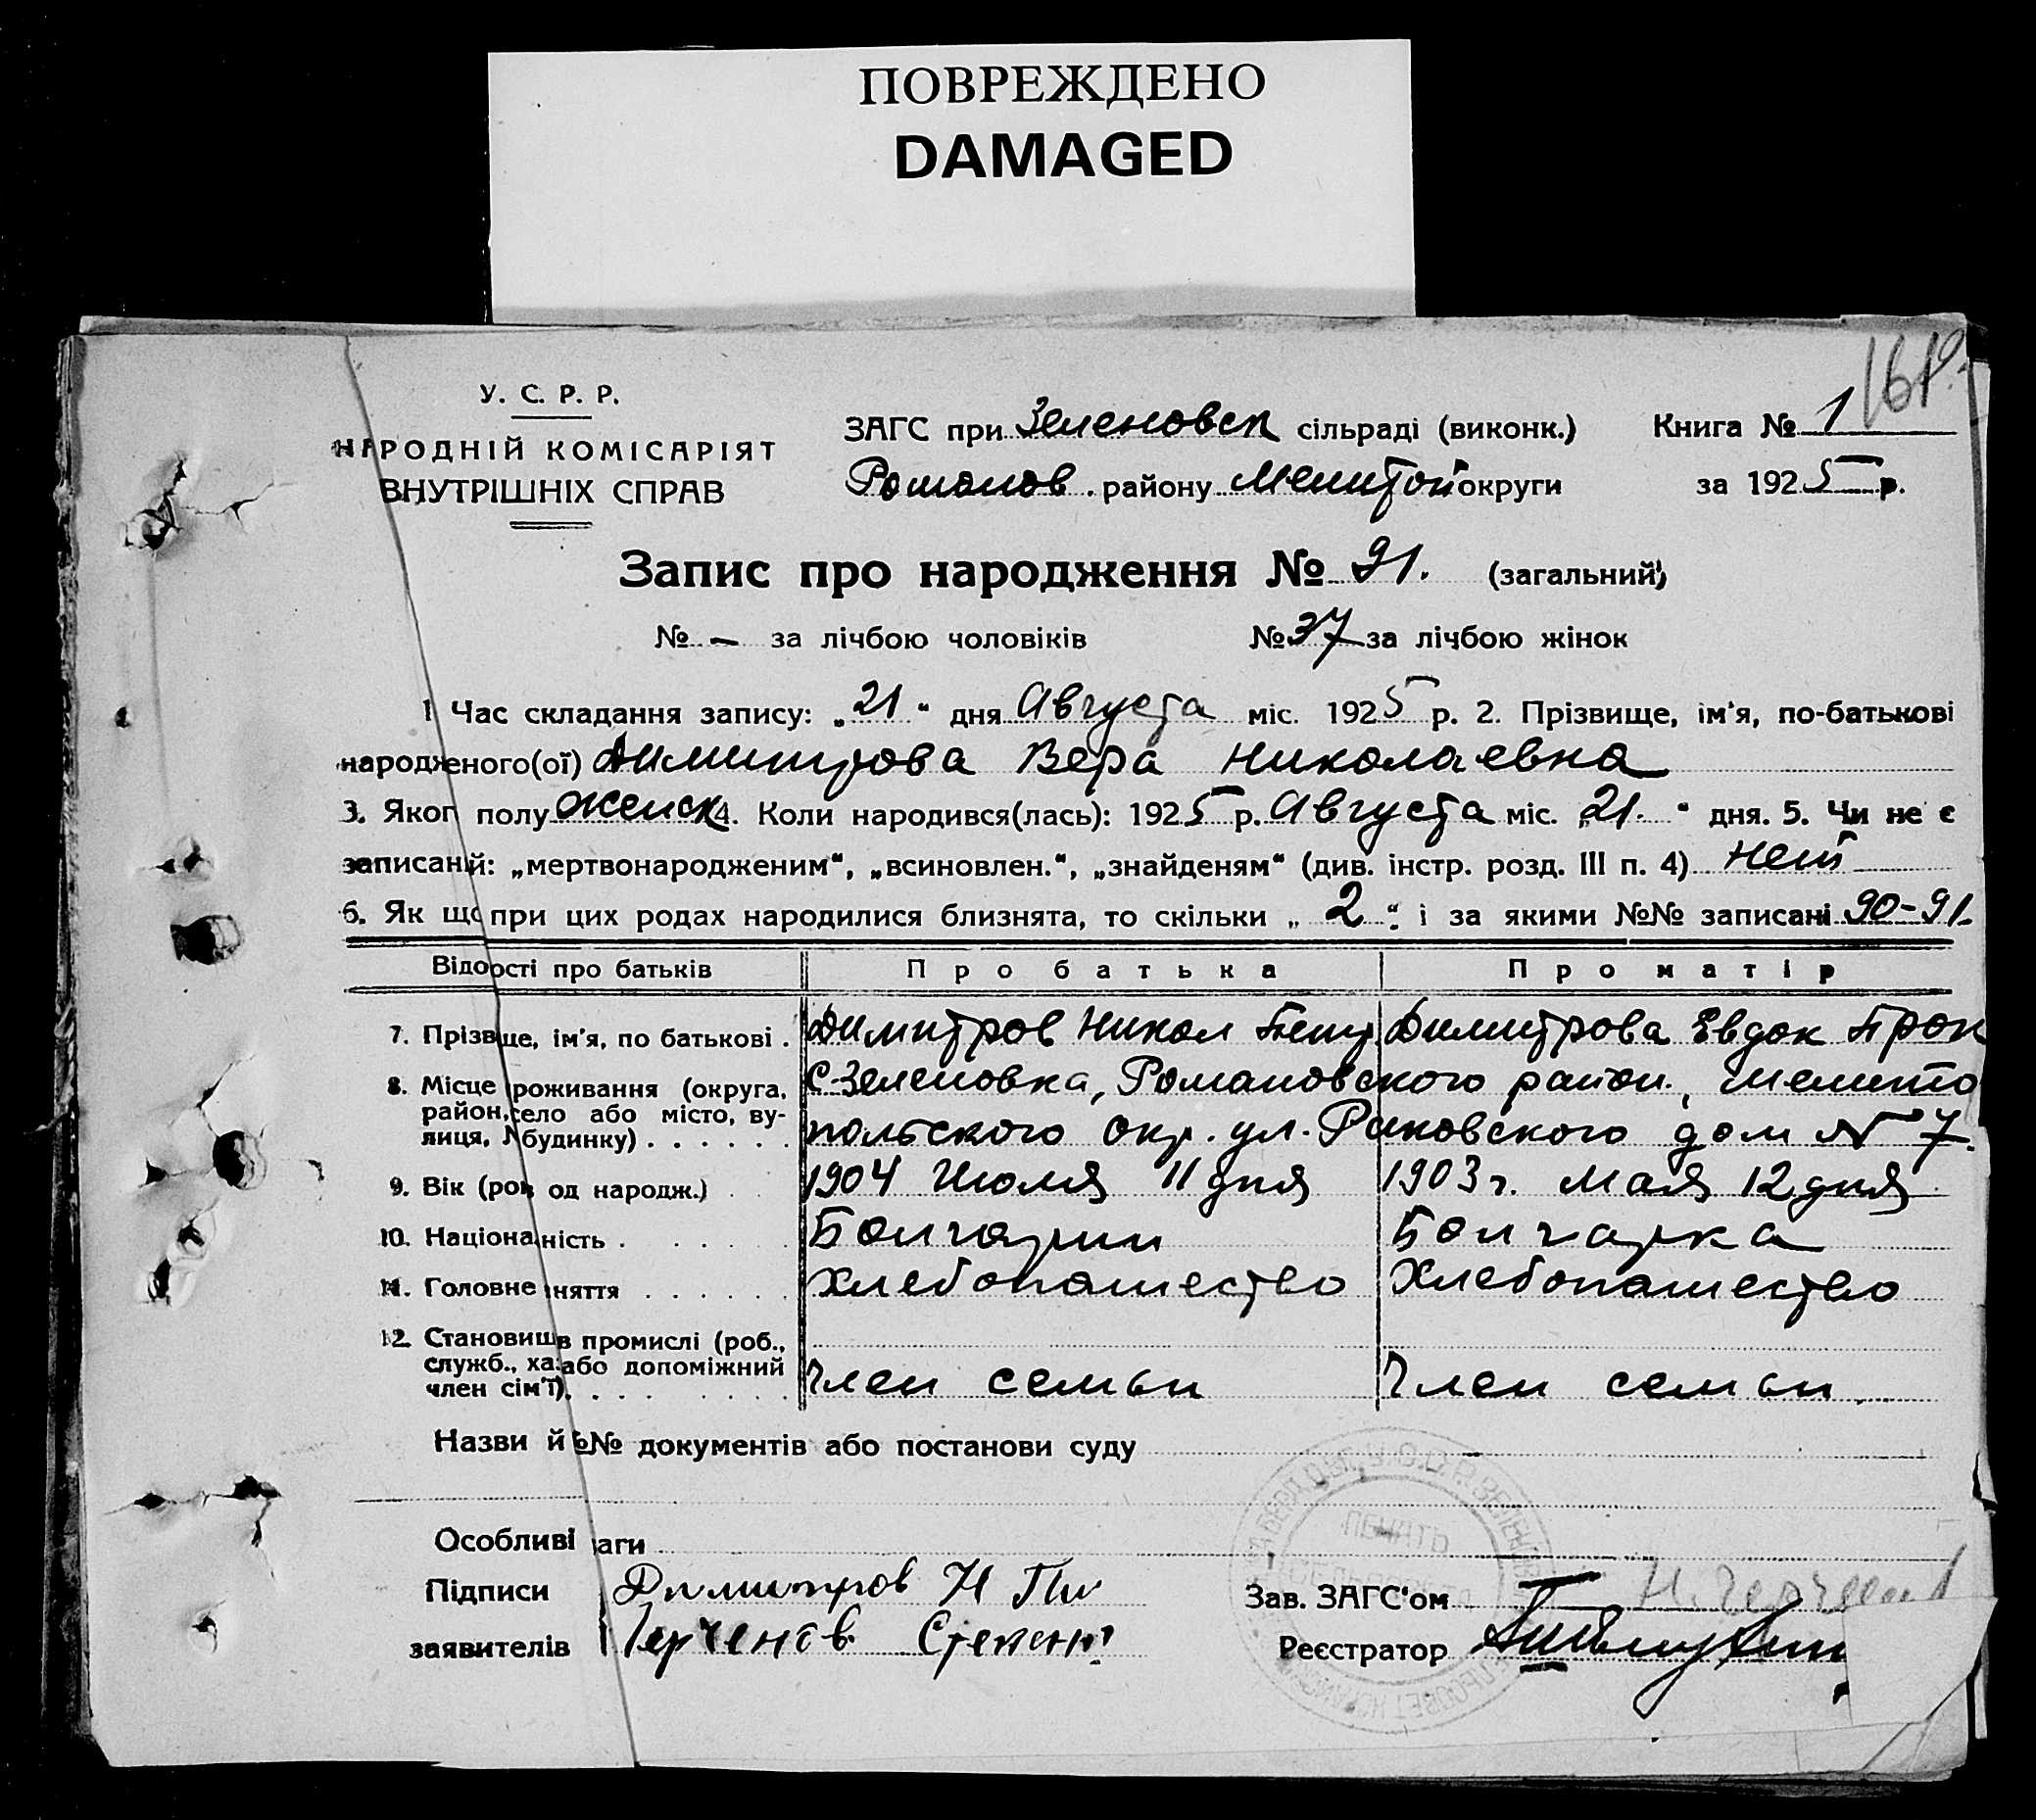 ПОВРЕЖДЕНО
DAMAGED
161
У. С. Р. Р.
НАРОДНІЙ КОМІСАРІЯТ
ВНУТРІШНІХ СПРАВ
ЗАГС при Зеленовск сільраді (виконк.) Книга № 1
Романов. району Мелитоп округи за 1925 р.
Запис про народження № 91. (загальний)
№ – за лічбою чоловіків № 37 за лічбою жінок
1 Час складання запису: „21“ дня Августа міс. 1925 р. 2. Прізвище, ім'я, по-батькові
народженого(ої) Димитрова Вера Николаевна
3. Яког полу женск 4. Коли народився(лась): 1925 р. Августа міс. „21.“ дня. 5. Чи не є
записаний: „мертвонародженим“, „всиновлен.“, „знайденям“ (див. інстр. розд. III п. 4) нет
6. Як що при цих родах народилися близнята, то скільки „2“ і за якими №№ записані 90-91.
Відо ості про батьків Про батька Про матір
7. Прізвище, ім'я, по батькові . Димитров Никол Петр. Димитрова Евдок Прок
8. Місце роживання (округа, район, село або місто, вулиця, № будинку) . . . . . . С-Зеленовка, Романовского район., Мелито
польского окр. ул. Раковского дом № 7.
9. Вік (рок од народж.) 1904 Июля 11 дня 1903 г. Мая 12 дня
10. Націона ність . Болгарин Болгарка
11. Головне няття . . . . . . Хлебопашество Хлебопашество
12. Становищ в промислі (роб., служб., ха або допоміжний член сім'ї). Член семьи Член семьи
Назви й №№ документів або постанови суду
Особливі аги
Підписи Димитров Н Пи Зав. ЗАГС'ом
заявителів Черченов Степон Реєстратор
ПЕЧАТЬ